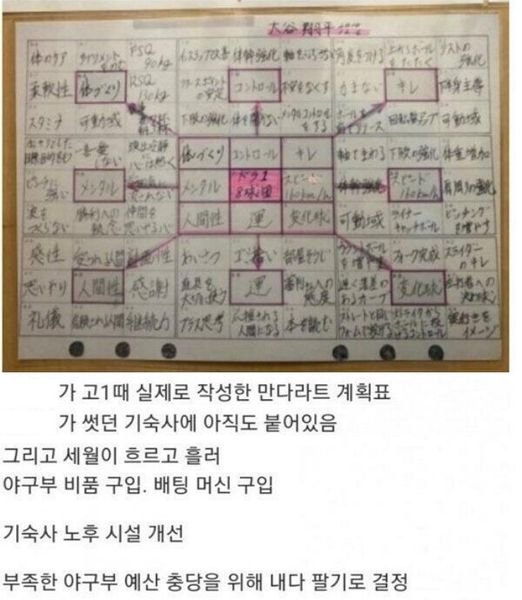 大谷翔平
体のケア サプリメントをのむ FSQ 90kg インステップ改善 体幹強化 軸をぶらさない 角度をつける 上からボールをたたく リストの強化
柔軟性 体づくり RSQ 130kg リリースポイントの安定 コントロール 不安をなくす 力まない キレ 下半身主導
スタミナ 可動域 下肢の強化 体を開かない メンタルコントロールをする ボールを前でリリース 回転数アップ 可動域
一喜一憂しない 頭は冷静に心は熱く 体づくり コントロール キレ 軸でまわる 下肢の強化 体重増加
ピンチに強い メンタル メンタル ドラ1 8球団 スピード160km/h 体幹強化 スピード160km/h 肩周りの強化
波をつくらない 勝利への執念 仲間を思いやる心 人間性 運 変化球 可動域 ライナーキャッチボール ピッチングを増やす
感性 愛される人間 計画性 あいさつ ゴミ拾い 部屋そうじ カウントボールを増やす フォーク完成 スライダーのキレ
思いやり 人間性 感謝 道具を大切に使う 運 審判さんへの態度 遅く落差のあるカーブ 変化球 左打者への決め球
礼儀 信頼される人間 継続力 プラス思考 応援される人間になる 本を読む ストレートと同じフォームで投げる ストライクからボールに投げるコントロール 奥行きをイメージ
가 고1때 실제로 작성한 만다라트 계획표
가 썻던 기숙사에 아직도 붙어있음
그리고 세월이 흐르고 흘러
야구부 비품 구입. 배팅 머신 구입
기숙사 노후 시설 개선
부족한 야구부 예산 충당을 위해 내다 팔기로 결정